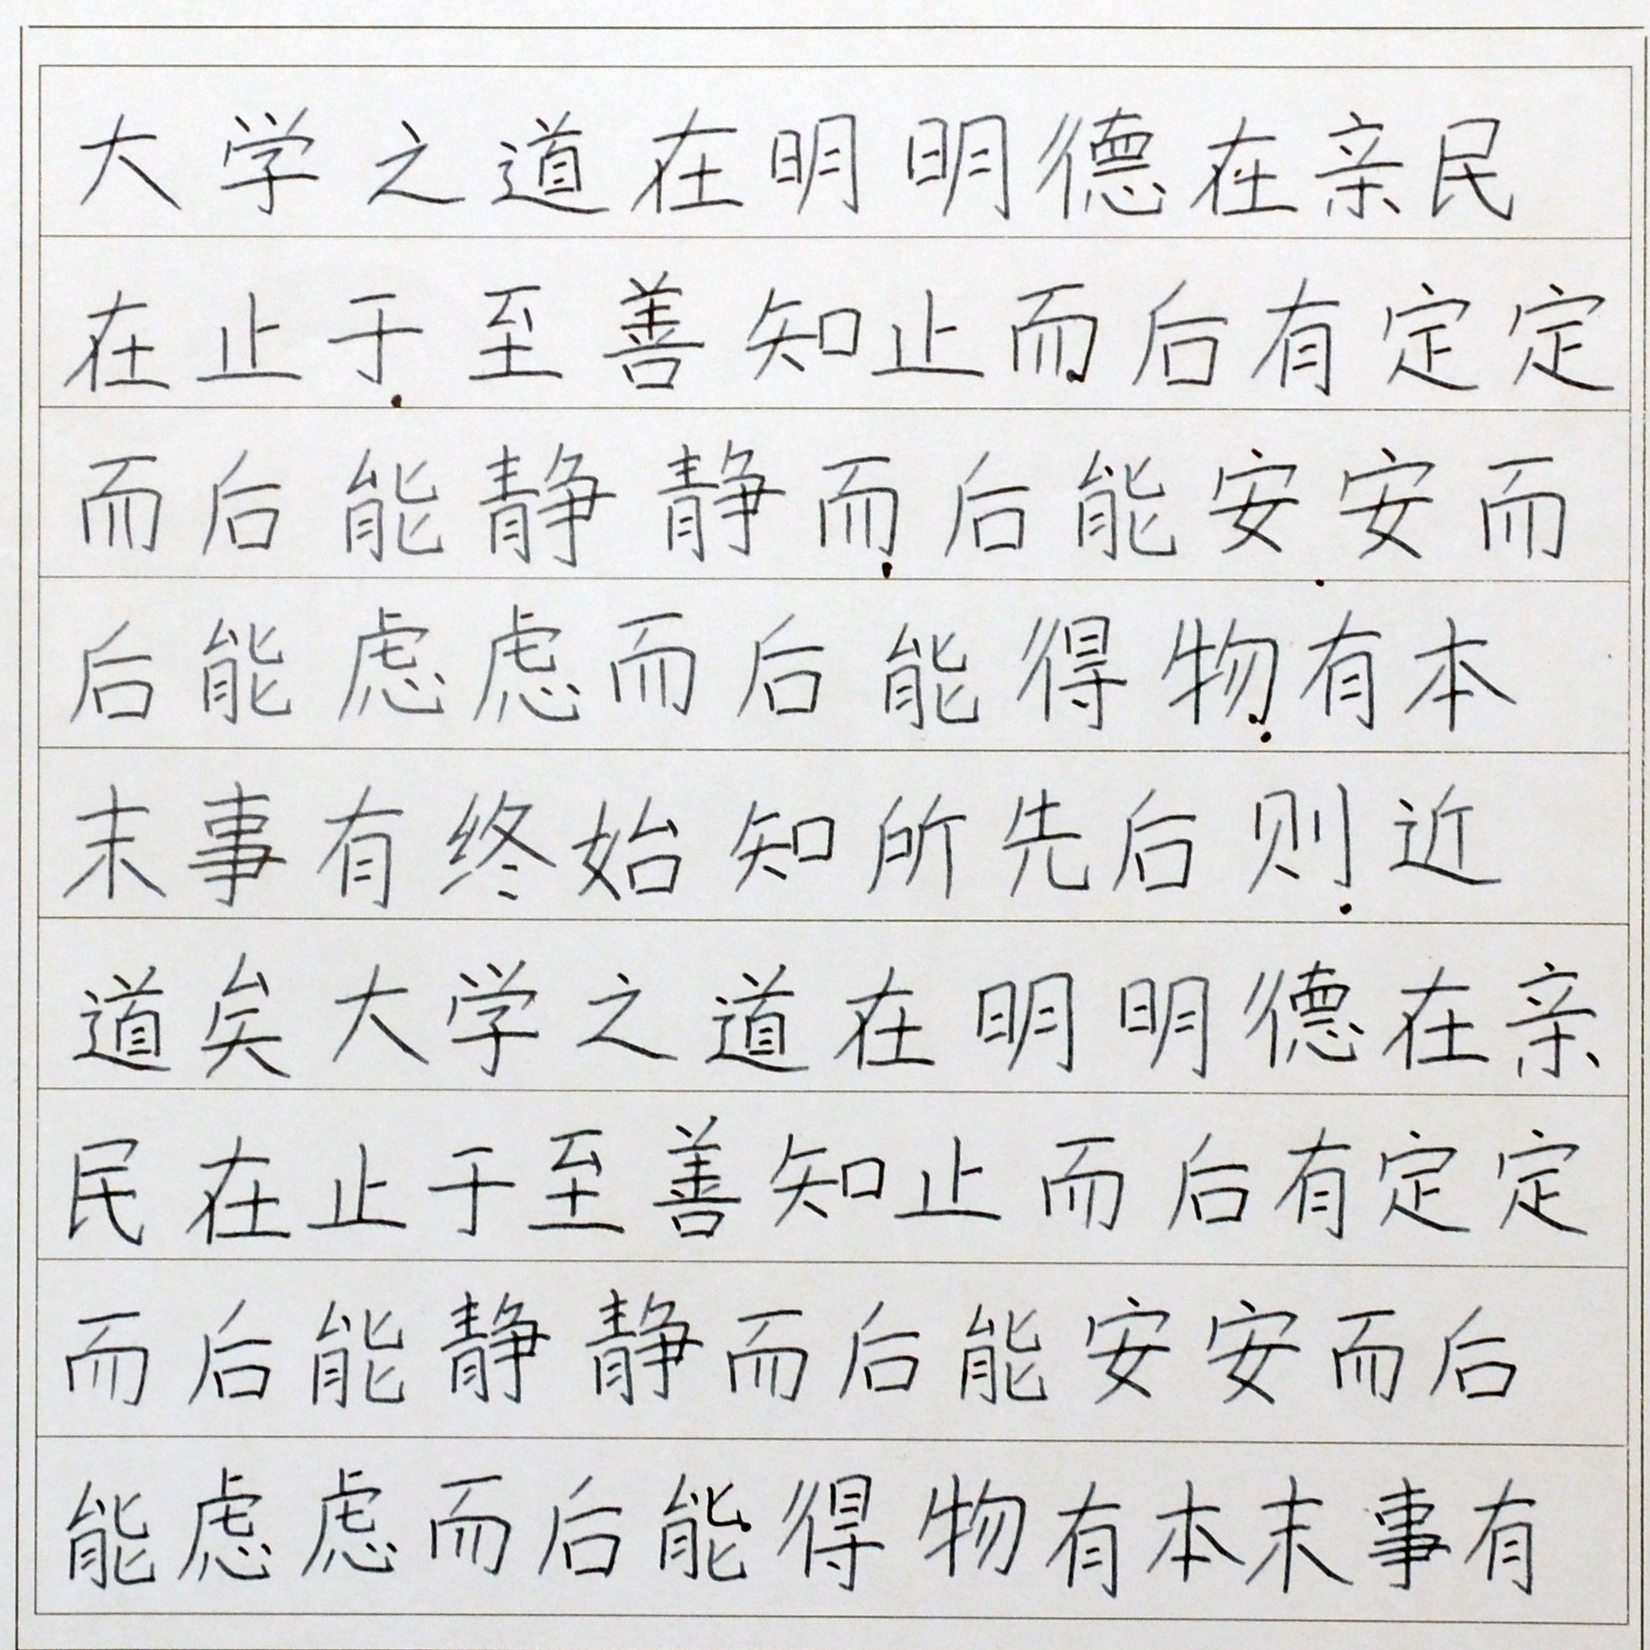 大学之道在明明德在亲民
在止于至善知止而后有定定
而后能静静而后能安安而
后能虑虑而后能得物有本
末事有终始知所先后则近
道矣大学之道在明明德在亲
民在止于至善知止而后有定定
而后能静静而后能安安而后
能虑虑而后能得物有本末事有